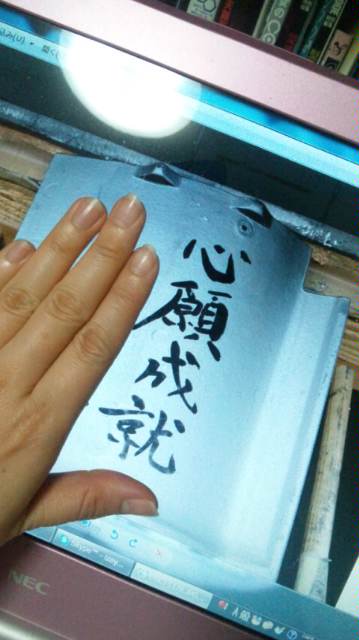 心願成就
NEC